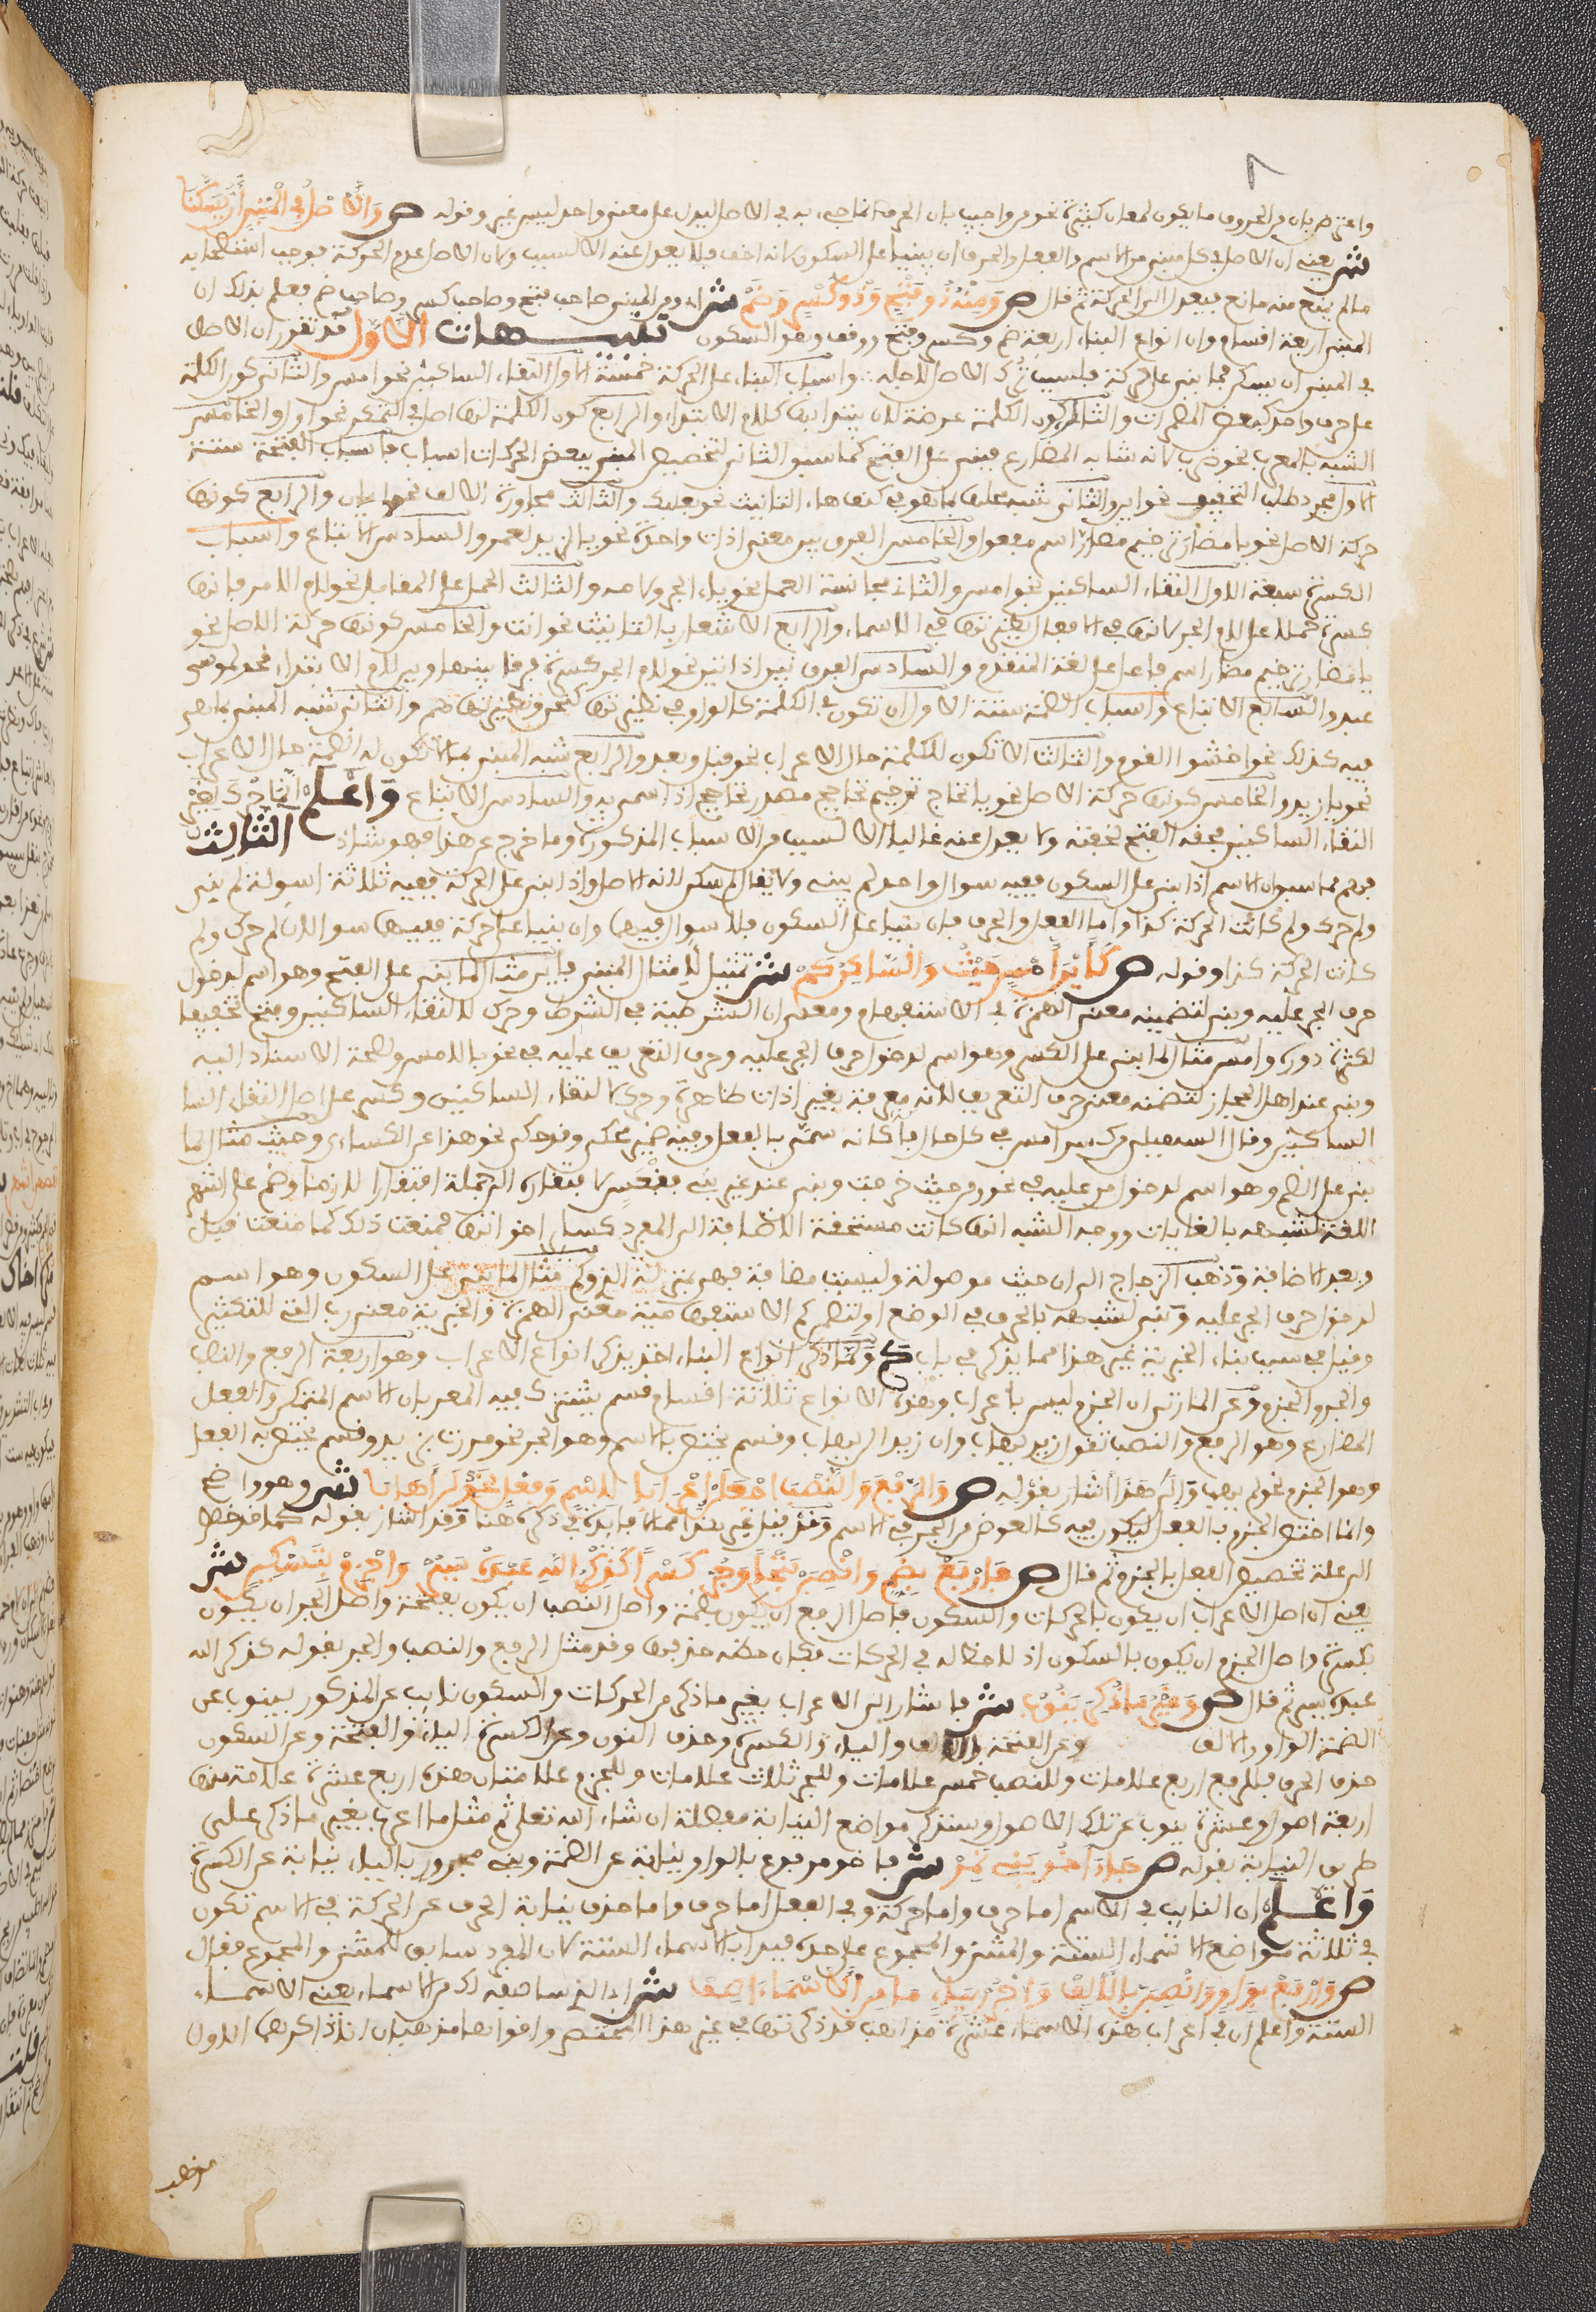 واعترض بان من الحروف ما يكون لمعان كثيرة نحو من واجيب بان الحرف انما جيء به في الاصل ليدل على معنى واحد ليس غير وقوله ص وَالاصْلُ في الْمَبْنِي أَنْ يُسَكَّنَا
ش يعني ان الاصل في كل مبني من الاسم والفعل والحرف ان يبنى على السكون لانه اخف فلا يعدل عنه الا لسبب ولان الاصل عدم الحركة فوجب استصحابه
ما لم يمنع منه مانع فيعدل الى الحركة ثم قال ص وَمِنْهُ ذُو فَتْحٍ وَذُو كَسْرٍ وَضَمّْ ش اي ومن المبني صاحب فتح وصاحب كسر وصاحب ضم فعلم بذلك ان
المبني اربعة اقسام وان انواع البناء اربعة ضم وكسر وفتح ووقف وهو السكون تنبيهات الاول قد تقرر ان الاصل
في المبني ان يسكن فما بني على الحركة فلسبب ترك الاصل لاجله واسباب البناء على الحركة خمسة الاول التقاء الساكنين نحو امس والثاني كون الكلمة
على حرف واحد كبعض المضمرات والثالث كون الكلمة عرضة لان يبتدا بها كلام الابتداء والرابع كون الكلمة لها اصل في التمكن نحو اول والخامس
الشبه بالمعرب نحو ضرب لانه شابه المضارع فبني على الفتح كما سبق الثاني لتخصيص المبني ببعض الحركات اسباب فاسباب الفتحة ستة
الاول مجرد طلب التخفيف نحو اين والثاني شبه محلها بما هو في كنف هاء التانيث نحو بعلبك والثالث مجاورة الالف نحو ايان والرابع كونها
حركة الاصل نحو يا مضار ترخيم مضارر اسم مفعول والخامس الفرق بين معنى اداة واحدة نحو يا لزيد لعمرو والسادس الاتباع واسباب
الكسرة سبعة الاول التقاء الساكنين نحو امس والثاني مجانسة العمل نحو باء الجر ولامه والثالث الحمل على المقابل نحو لام الامر فانها
كسرت حملا على لام الجر لانها في الفعل نظيرتها في الاسماء والرابع الاشعار بالتانيث نحو انت والخامس كونها حركة الاصل نحو
يا مضار ترخيم مضارر اسم فاعل على لغة المتقدم والسادس الفرق بين اداتين نحو لام الجر كسرت فرقا بينها وبين لام الابتداء نحو لموسى
عبد والسابع الاتباع واسباب الضمة ستة الاول ان تكون في الكلمة كالواو في نظيرتها كنحن ونظيرتها همو والثاني شبه المبني بما هي
فيه كذلك نحو اخشوا القوم والثالث الا تكون للكلمة حال الاعراب نحو قبل وبعد والرابع شبه المبني بما لا تكون له الضمة حال الاعراب
نحو يا زيد والخامس كونها حركة الاصل نحو يا تحاج ترخيم تحاجج مصدر تحاجج اذا سمي به والسادس الاتباع وَاعْلَم ان ما حُرِّك لغير
التقاء الساكنين فحقه الفتح لخفته ولا يعدل عنه غالبا الا لسبب من الاسباب المذكورة وما خرج عن هذا فهو شاذ الثالث
فهم مما سبق ان الاسم اذا بني على السكون ففيه سوال واحد لم بني ولا يقال لم سكن لانه الاصل واذا بني على الحركة ففيه ثلاثة اسولة لم بني
ولم حرك ولم كانت الحركة كذا واما الفعل والحرف فان بنيا على السكون فلا سوال فيهما وان بنيا على حركة ففيهما سوالان لم حرك ولم
كانت الحركة كذا وقوله ص كَأَيْنَ أَمْسِ حَيْثُ وَالسَّاكِنُ كَمْ ش تمثيل لامثال المبني فاين مثال لما بني على الفتح وهو اسم لدخول
حرف الجر عليه وبني لتضمنه معنى الهمزة في الاستفهام ومعنى ان الشرطية في الشرط وحرك لالتقاء الساكنين وفتح تخفيفا
لكثرة دوره وامس مثال لما بني على الكسر وهو اسم لدخول حرف الجر عليه وحرف التعريف عليه في نحو بالامس ولصحة الاسناد اليه
وبني عند اهل الحجاز لتضمنه معنى حرف التعريف لانه معرفة بغير اداة ظاهرة وحرك لالتقاء الساكنين وكسر على اصل التقاء السا
الساكنين وقال السهيلي حركة سين امس في كل حال فانما كانه سمي بالفعل وفيه ضمير محكي وقد حكي نحو هذا عن الكساءي وحيث مثال لما
بني على الضم وهو اسم لدخول من عليه في نحو ومن حيث خرجت وبني عند غير بني فقعس لافتقاره الى جملة افتقارا لازما وضم على اشهر
اللغة لشبهه بالغايات ووجه الشبه انها كانت مستحقة الاضافة الى المفرد كسائر اخواتها فمنعت ذلك كما منعت قبل
وبعد الاضافة وذهب الزجاج الى ان حيث موصولة وليست مضافة فهي بمنزلة الذي وكم مثال لما بني على السكون وهو اسم
لدخول حرف الجر عليه وبني لشبهه بالحرف في الوضع او لتضمن كم الاستفهامية معنى الهمزة والخبرية معنى رب التي للتكثير
وقيل في سبب بناء الخبرية غير هذا مما يذكر في باب كم ولما ذكر انواع البناء اخذ يذكر انواع الاعراب وهو اربعة الرفع والنصب
والجر والجزم وعن المازني ان الجزم ليس باعراب وهذه الانواع ثلاثة اقسام قسم يشترك فيه المعربان الاسم المتمكن والفعل
المضارع وهو الرفع والنصب تقول زيد يهاب وان زيدا لن يهاب وقسم يختص بالاسم وهو الجر نحو مررت بزيد وقسم يختص به الفعل
وهو الجزم نحو لم يهب وَإِلَى هَذَا أشار بقوله ص وَالرَّفْعَ وَالنَّصْبَ اجْعَلَنْ إِعْرَابا لِاسْمٍ وَفِعْلٍ نَحْوُ لَنْ أَهَابَا ش وهو واضح
وانما اختص الجزم بالفعل ليكون فيه كالعوض من الجر في الاسم وقد قيل غير هذا مما لا فايدة في ذكره هنا وقد اشار بقوله كما قد خصصا
الى علة تخصيص الفعل بالجزم ثم قال ص فَارْفَعْ بِضَمٍّ وَانْصِبَنْ فَتْحاً وَجُرْ كَسْراً كَذِكْرُ اللهِ عَبْدَهُ يَسُرْ وَاجْزِمْ بِتَسْكِينٍ ش
يعني ان اصل الاعراب ان يكون بالحركات والسكون فاصل الرفع ان يكون بضمة واصل النصب ان يكون بفتحة واصل الجر ان يكون
بكسرة واصل الجزم ان يكون بالسكون اذ لا حظ له في الحركات فكان حظه حذفها وقد مثل الرفع والنصب والجر بقوله كذكر الله
عبده يسر ثم قال ص وَغَيْرُ مَا ذُكِرْ يَنُوبُ ش فاشار الى ان الاعراب بغير ما ذكر من الحركات والسكون نايب عن المذكور فينوب عن
الضمة الواو والالف وعن الفتحة الالف والياء والكسرة وحذف النون وعن الكسرة الياء والفتحة وعن السكون
حذف الحرف فللرفع اربع علامات وللنصب خمس علامات وللجر ثلاث علامات وللجزم علامتان هذه اربع عشرة علامة منها
اربعة اصول وعشرة ينوب عن تلك الاصول وستذكر مواضع النيابة مفصلة ان شاء الله تعلى ثم مثل ما اعرب بغير ما ذكر على
طريق النيابة بقوله ص جَا أَخُو بَنِي نَمِرْ ش فاخو مرفوع بالواو نيابة عن الضمة وبني مجرور بالياء نيابة عن الكسرة
وَاعْلَم ان النايب في الاسم اما حرف واما حركة وفي الفعل اما حرف واما حذف فنيابة الحرف عن الحركة في الاسم تكون
في ثلاثة مواضع الاسماء الستة والمثنى والمجموع على حده فبدا بالاسماء الستة لان المفرد سابق للمثنى والمجموع فقال
ص وَارْفَعْ بِوَاوٍ وَانْصِبَنَّ بِالْأَلِفْ وَاجْرُرْ بِيَاءٍ مَا مِنَ الْأَسْمَاءِ أَصِفْ ش اي الذي ساصفه لك من الاسماء يعني الاسماء
الستة واعلم ان في اعراب هذه الاسماء عشرة مذاهب قد ذكرتها في غير هذا المختصر واقواها مذهبان انا ذاكرهما الاول
مذهب